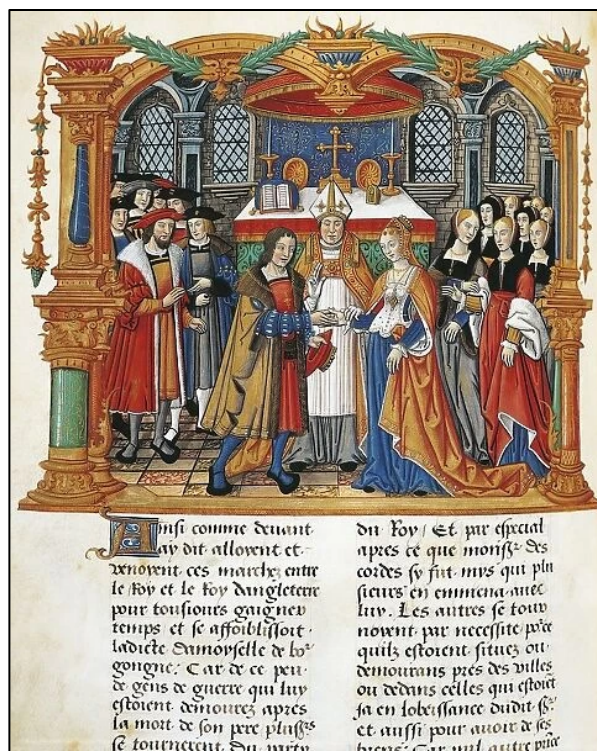 Ainsi comme deuant
ay dit alloyent et
venoyent ces marchez entre
le Roy et le Roy dangleterre
pour tousiours gaigner
temps et se affoiblissoit
ladicte damoyselle de bo⁹
gongne: Car de ce peu
de gens de guerre qui luy
estoient demourez apres
la mort de son pere
se tournerent du party
du Roy / Et par especial
apres ce que mons des
cordes sy fut mys qui plu
sieurs en emmena auec
luy. Les autres se tour
noyent par necessite
quilz estoient situez ou
demourans pres des villes
ou dedans celles qui estoiet
ja en lobeissance dudit
et aussi pour auoir de ses
biens: Car nul autre